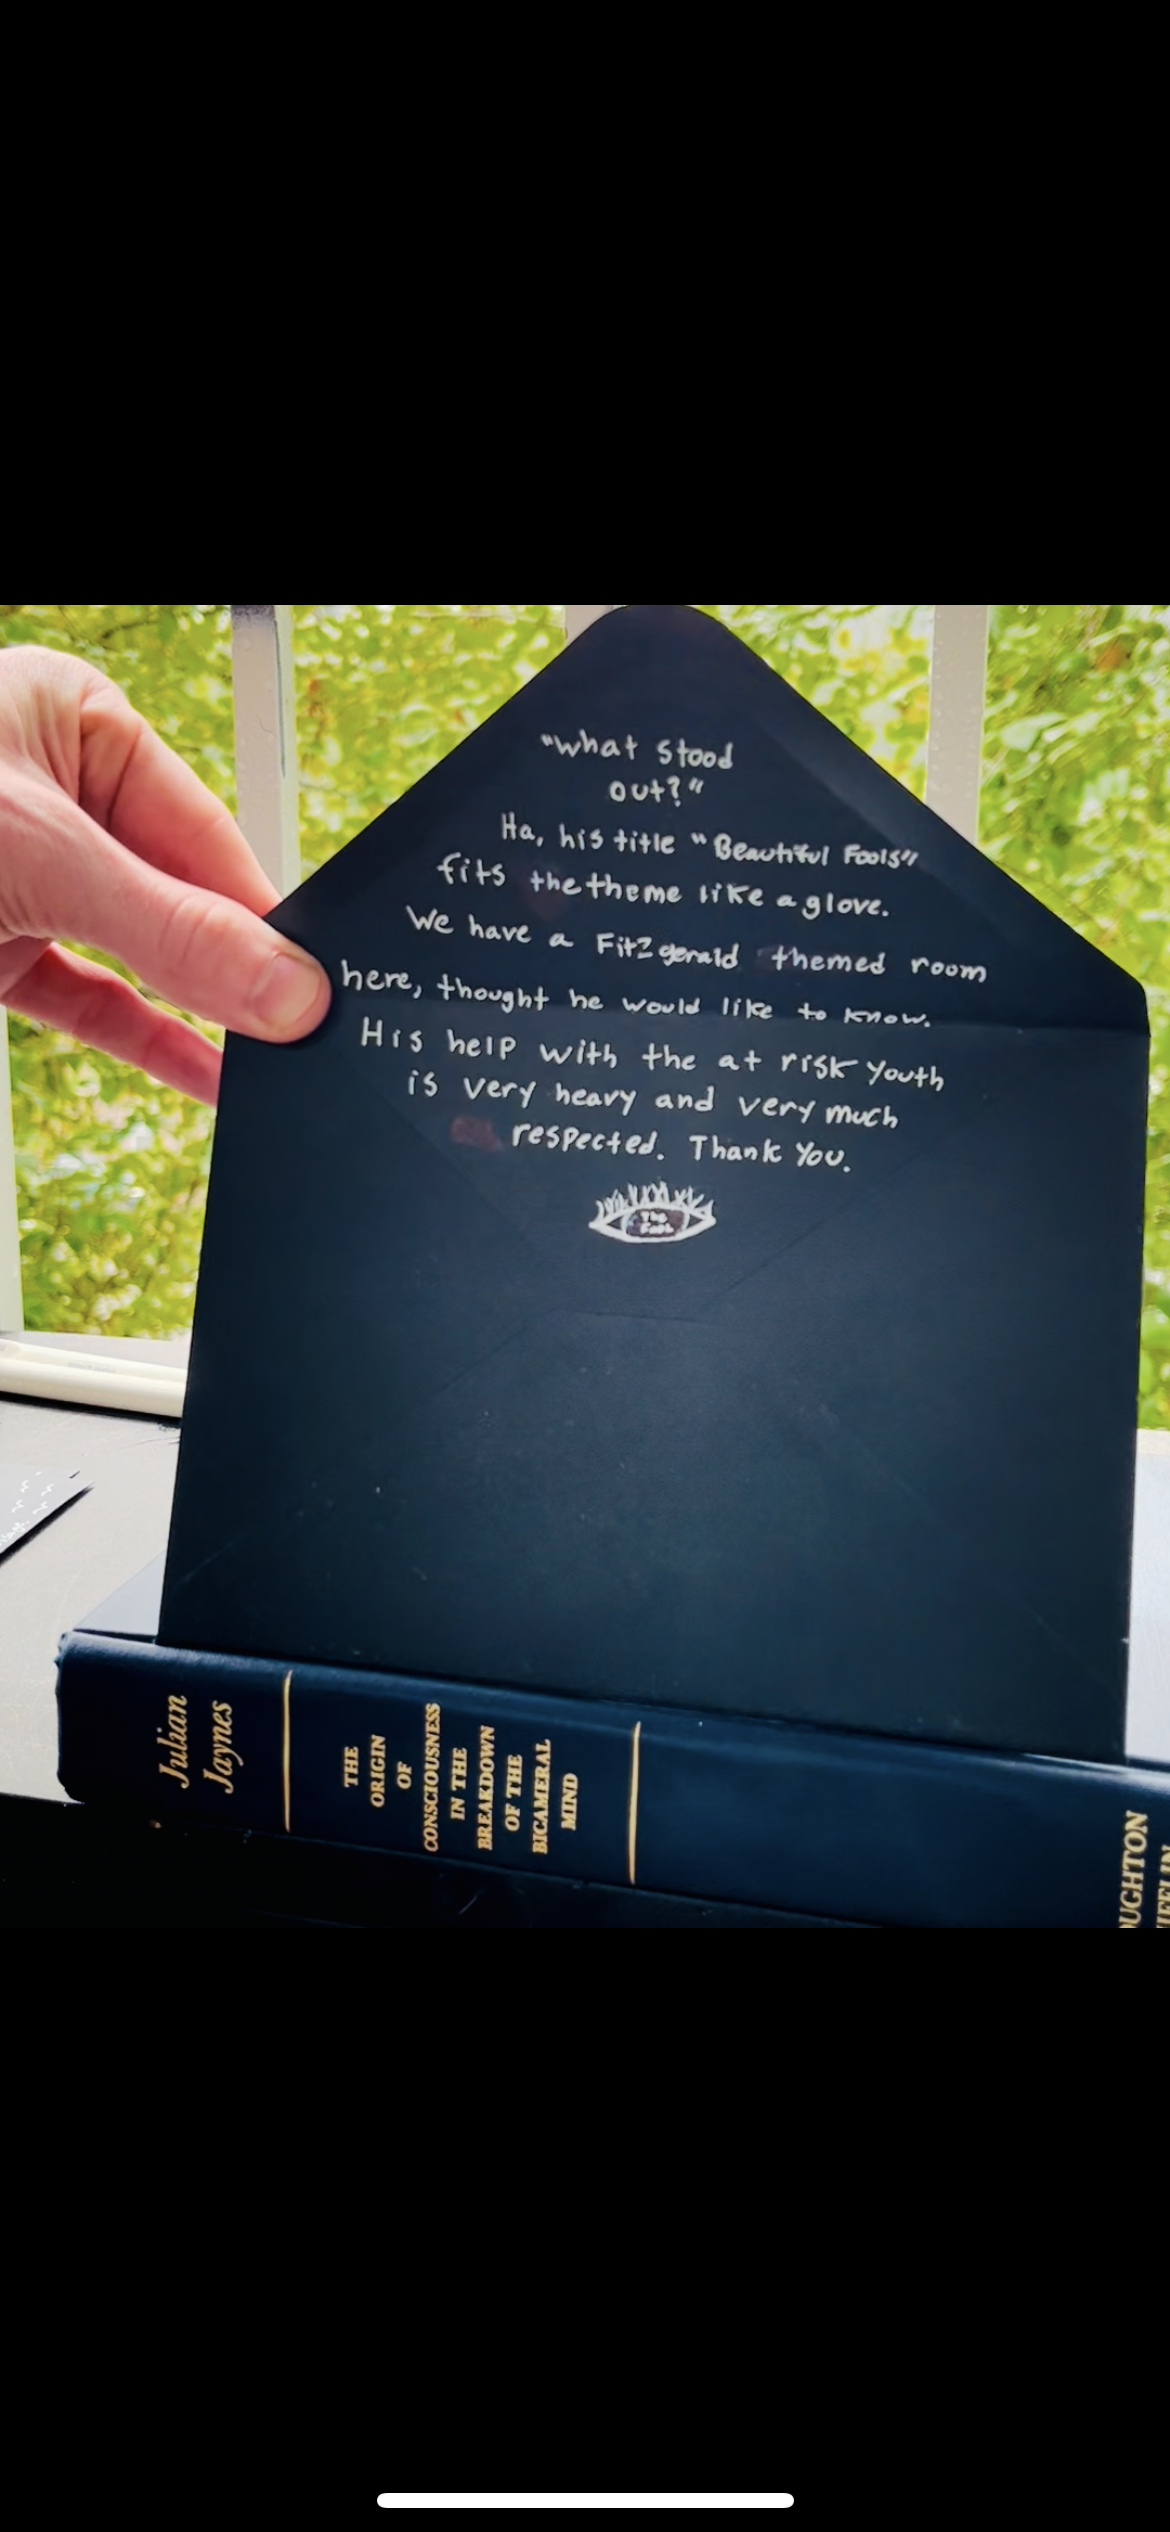 "What stood
out?"
Ha, his title "Beautiful Fools"
fits the theme like a glove.
We have a Fitzgerald themed room
here, thought he would like to know.
His help with the at risk youth
is very heavy and very much
respected. Thank You.
The
Julian
Jaynes
THE
ORIGIN
OF
CONSCIOUSNESS
IN THE
BREAKDOWN
OF THE
BICAMERAL
MIND
OUGHTON